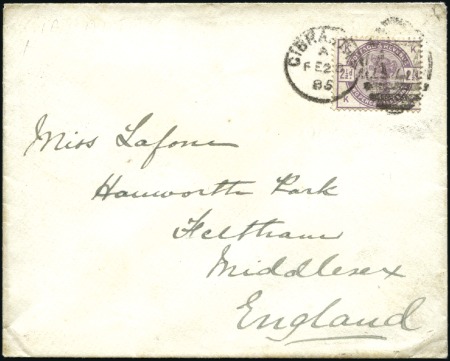 GIBRALTAR
A
FE 25
85
2½
K
Miss Lafone
Hanworth Park
Feltham
Middlesex
England